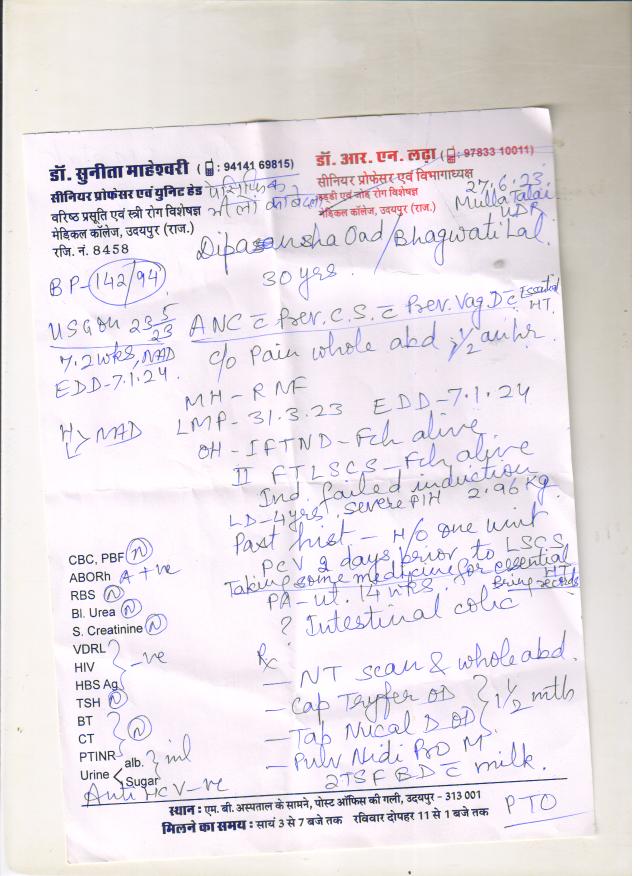 डॉ. सुनीता माहेश्वरी (📱: 94141 69815)
सीनियर प्रोफेसर एवं यूनिट हेड
वरिष्ठ प्रसूति एवं स्त्री रोग विशेषज्ञ
मेडिकल कॉलेज, उदयपुर (राज.)
रजि. नं. 8458
डॉ. आर. एन. लढ़ा (📱: 97833 10011)
सीनियर प्रोफेसर एवं विभागाध्यक्ष
हड्डी एवं जोड़ रोग विशेषज्ञ
मेडिकल कॉलेज, उदयपुर (राज.)
27.6.23
Mulla Talai
UDR
Oad / Bhagwati Lal
30 yrs.
BP-(142/94)
USG on 23/5/23
7.2 wks, NAD
EDD-7.1.24.
H NAD
L
ANC c̄ Prev. C.S. c̄ Prev. Vag. D c̄ Essential
HT.
c/o Pain whole abd, ½ an hr.
MH - RNF
LMP - 31.3.23 EDD - 7.1.24
OH - I FTND - Fch alive
II FTLSCS - Fch alive
Ind. failed induction
LD - 4yrs, severe PIH 2.96 kg
Past hist - H/O one unit
PCV 2 days prior to LSCS
Taking some medicine for essential
HT
PA - ut. 14 wks. Bring records
? Intestinal colic
CBC, PBF (N)
ABORh A +ve
RBS (N)
Bl. Urea (N)
S. Creatinine (N)
VDRL
HIV -ve
HBS Ag
TSH (N)
BT
CT (N)
PTINR
Urine alb. nil
Sugar
Anti HCV -ve
Rx
- NT scan & whole abd.
- Cap Tryfer OD
- Tab Nucal D OD 1½ mth
- Pulv Nidi Pro M
2TSF BD c̄ milk.
PTO
स्थान : एम. बी. अस्पताल के सामने, पोस्ट ऑफिस की गली, उदयपुर - 313 001
मिलने का समय : सायं 3 से 7 बजे तक रविवार दोपहर 11 से 1 बजे तक